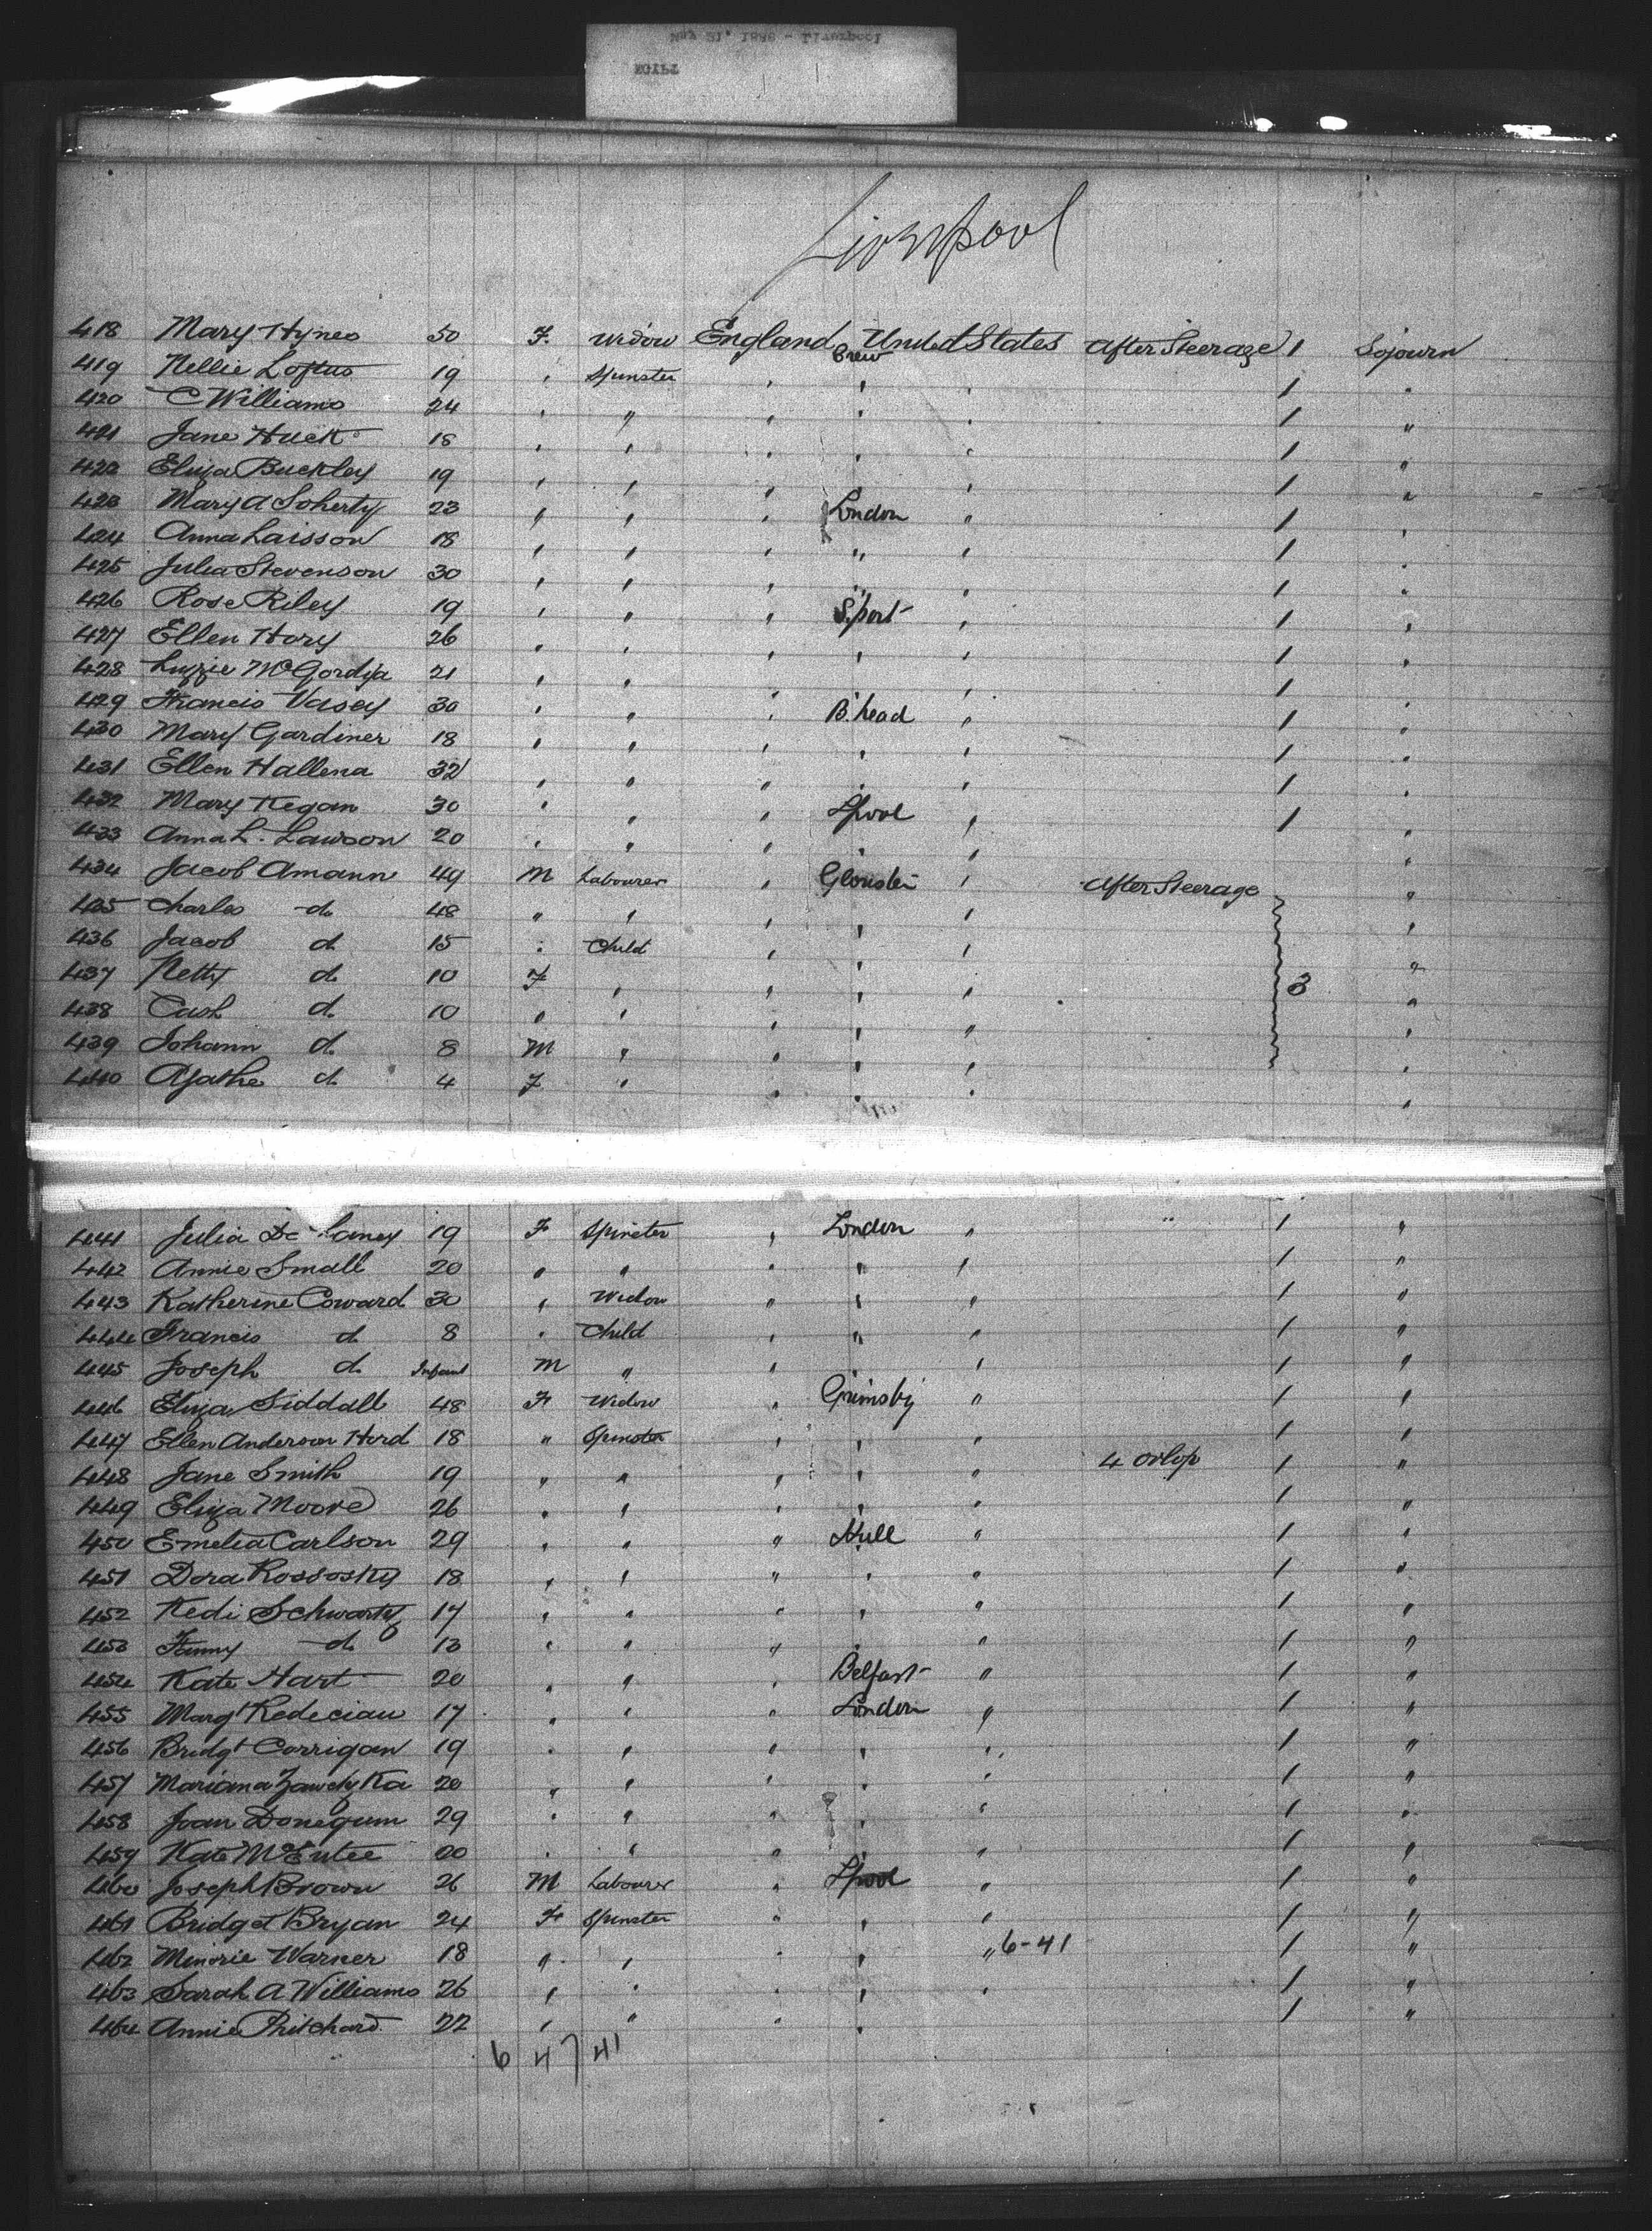 May 21, 1886 - Liverpool
EGYPT
Liverpool
418 Mary Hynes 50 F. Widow England United States After Steerage 1 Sojourn
Crew
419 Nellie Loftus 19 " Spinster " " " 1 "
420 C Williams 24 " " " " " 1 "
421 Jane Huck 18 " " " " " 1 "
422 Eliza Buckley 19 " " " " " 1 "
423 Mary A Doherty 23 " " " London " 1 "
424 Anna Laisson 18 " " " " " 1 "
425 Julia Stevenson 30 " " " " " 1 "
426 Rose Riley 19 " " " S.port " 1 "
427 Ellen Hory 26 " " " " " 1 "
428 Luzzie McGordya 21 " " " " 1 "
429 Francis Vasey 30 " " " B.head " 1 "
430 Mary Gardiner 18 " " " " " 1 "
431 Ellen Hallena 32 " " " " " 1 "
432 Mary Kegan 30 " " " Lpool " 1 "
433 Anna L. Lawson 20 " " " " " "
434 Jacob Amann 49 M Labourer " Glouster " After Steerage "
435 Charles do 48 " " " " " "
436 Jacob do 15 " Child " " " "
437 Netty do 10 F " " " " 3 "
438 Cash do 10 " " " " " "
439 Johann do 8 M " " " " "
440 Agathe do 4 F " " " " "
441 Julia De laney 19 F Spinster " London " " 1 "
442 Annie Small 20 " " " " " 1 "
443 Katherine Coward 30 " Widow " " " 1 "
444 Francis do 8 " Child " " " 1 "
445 Joseph do Infant M " " " " 1 "
446 Eliza Siddall 48 F Widow " Grimsby " 1 "
447 Ellen Anderson Hord 18 " Spinster " " " 1 "
448 Jane Smith 19 " " " " " 4 Orlop 1 "
449 Eliza Moore 26 " " " " " 1 "
450 Emelia Carlson 29 " " " Hull " 1 "
451 Dora Rossosky 18 " " " " " 1 "
452 Kedi Schwartz 17 " " " " " 1 "
453 Fanny do 13 " " " " " 1 "
454 Kate Hart 20 " " " Belfast " 1 "
455 Margt Redecian 17 " " " London " 1 "
456 Bridgt Corrigan 19 " " " " " 1 "
457 Mariana Zawdyka 20 " " " " " 1 "
458 Joan Donegum 29 " " " " " 1 "
459 Kate McEntee 00 " " " " " 1 "
460 Joseph Brown 26 M Labourer " Lpool " 1 "
461 Bridget Bryan 24 F Spinster " " " 1 "
462 Minorie Warner 18 " " " " " 6-41 1 "
463 Sarah A Williams 26 " " " " " 1 "
464 Annie Pritchard 22 " " " " 1 "
6 47 41